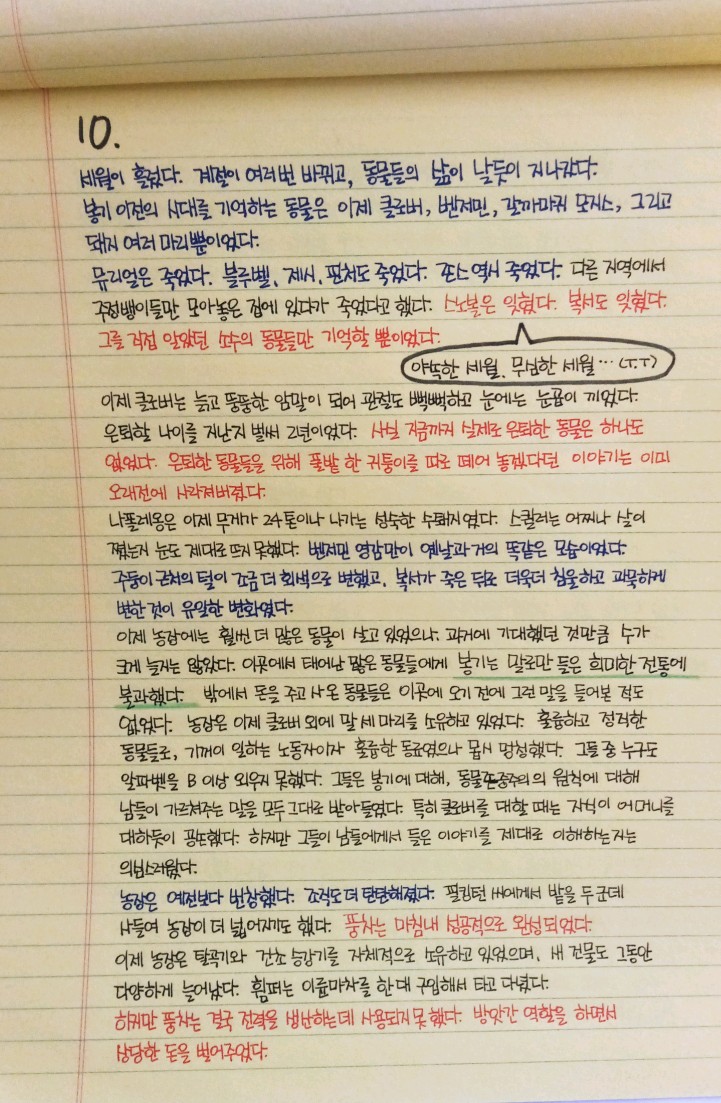 10.
세월이 흘렀다. 계절이 여러번 바뀌고, 동물들의 삶이 날듯이 지나갔다.
봉기 이전의 시대를 기억하는 동물은 이제 클로버, 벤저민, 갈까마귀 모지스, 그리고
돼지 여러 마리뿐이었다.
뮤리얼은 죽었다. 블루벨, 제시, 핀처도 죽었다. 존스 역시 죽었다. 다른 지역에서
주정뱅이들만 모아놓은 집에 있다가 죽었다고 했다. 스노볼은 잊혔다. 복서도 잊혔다.
그를 직접 알았던 소수의 동물들만 기억할 뿐이었다.
야속한 세월, 무심한 세월… (T.T)
이제 클로버는 늙고 뚱뚱한 암말이 되어 관절도 뻑뻑하고 눈에는 눈곱이 끼었다.
은퇴할 나이를 지난지 벌써 2년이었다. 사실 지금까지 실제로 은퇴한 동물은 하나도
없었다. 은퇴한 동물들을 위해 풀밭 한 귀퉁이를 따로 떼어 놓겠다던 이야기는 이미
오래전에 사라져버렸다.
나폴레옹은 이제 무게가 24톤이나 나가는 성숙한 수퇘지였다. 스퀼러는 어찌나 살이
쪘는지 눈도 제대로 뜨지 못했다. 벤저민 영감만이 옛날과 거의 똑같은 모습이었다.
주둥이 근처의 털이 조금 더 회색으로 변했고, 복서가 죽은 뒤로 더욱더 침울하고 과묵하게
변한 것이 유일한 변화였다.
이제 농장에는 훨씬 더 많은 동물이 살고 있었으나, 과거에 기대했던 것만큼 수가
크게 늘지는 않았다. 이곳에서 태어난 많은 동물들에게 봉기는 말로만 들은 희미한 전통에
불과했다. 밖에서 돈을 주고 사온 동물들은 이곳에 오기 전에 그런 말을 들어본 적도
없었다. 농장은 이제 클로버 외에 말 세 마리를 소유하고 있었다. 훌륭하고 정직한
동물들로, 기꺼이 일하는 노동자이자 훌륭한 동료였으나 몹시 멍청했다. 그들 중 누구도
알파벳을 B 이상 외우지 못했다. 그들은 봉기에 대해, 동물주의의 원칙에 대해
남들이 가르쳐주는 말을 모두 그대로 받아들였다. 특히 클로버를 대할 때는 자식이 어머니를
대하듯이 공손했다. 하지만 그들이 남들에게서 들은 이야기를 제대로 이해하는지는
의심스러웠다.
농장은 예전보다 번창했다. 조직도 더 탄탄해졌다. 필킹턴 씨에게서 밭을 두 군데
사들여 농장이 더 넓어지기도 했다. 풍차는 마침내 성공적으로 완성되었다.
이제 농장은 탈곡기와 건초 승강기를 자체적으로 소유하고 있었으며, 새 건물도 그동안
다양하게 늘어났다. 휨퍼는 이륜마차를 한 대 구입해서 타고 다녔다.
하지만 풍차는 결국 전력을 생산하는데 사용되지 못했다. 방앗간 역할을 하면서
상당한 돈을 벌어주었다.